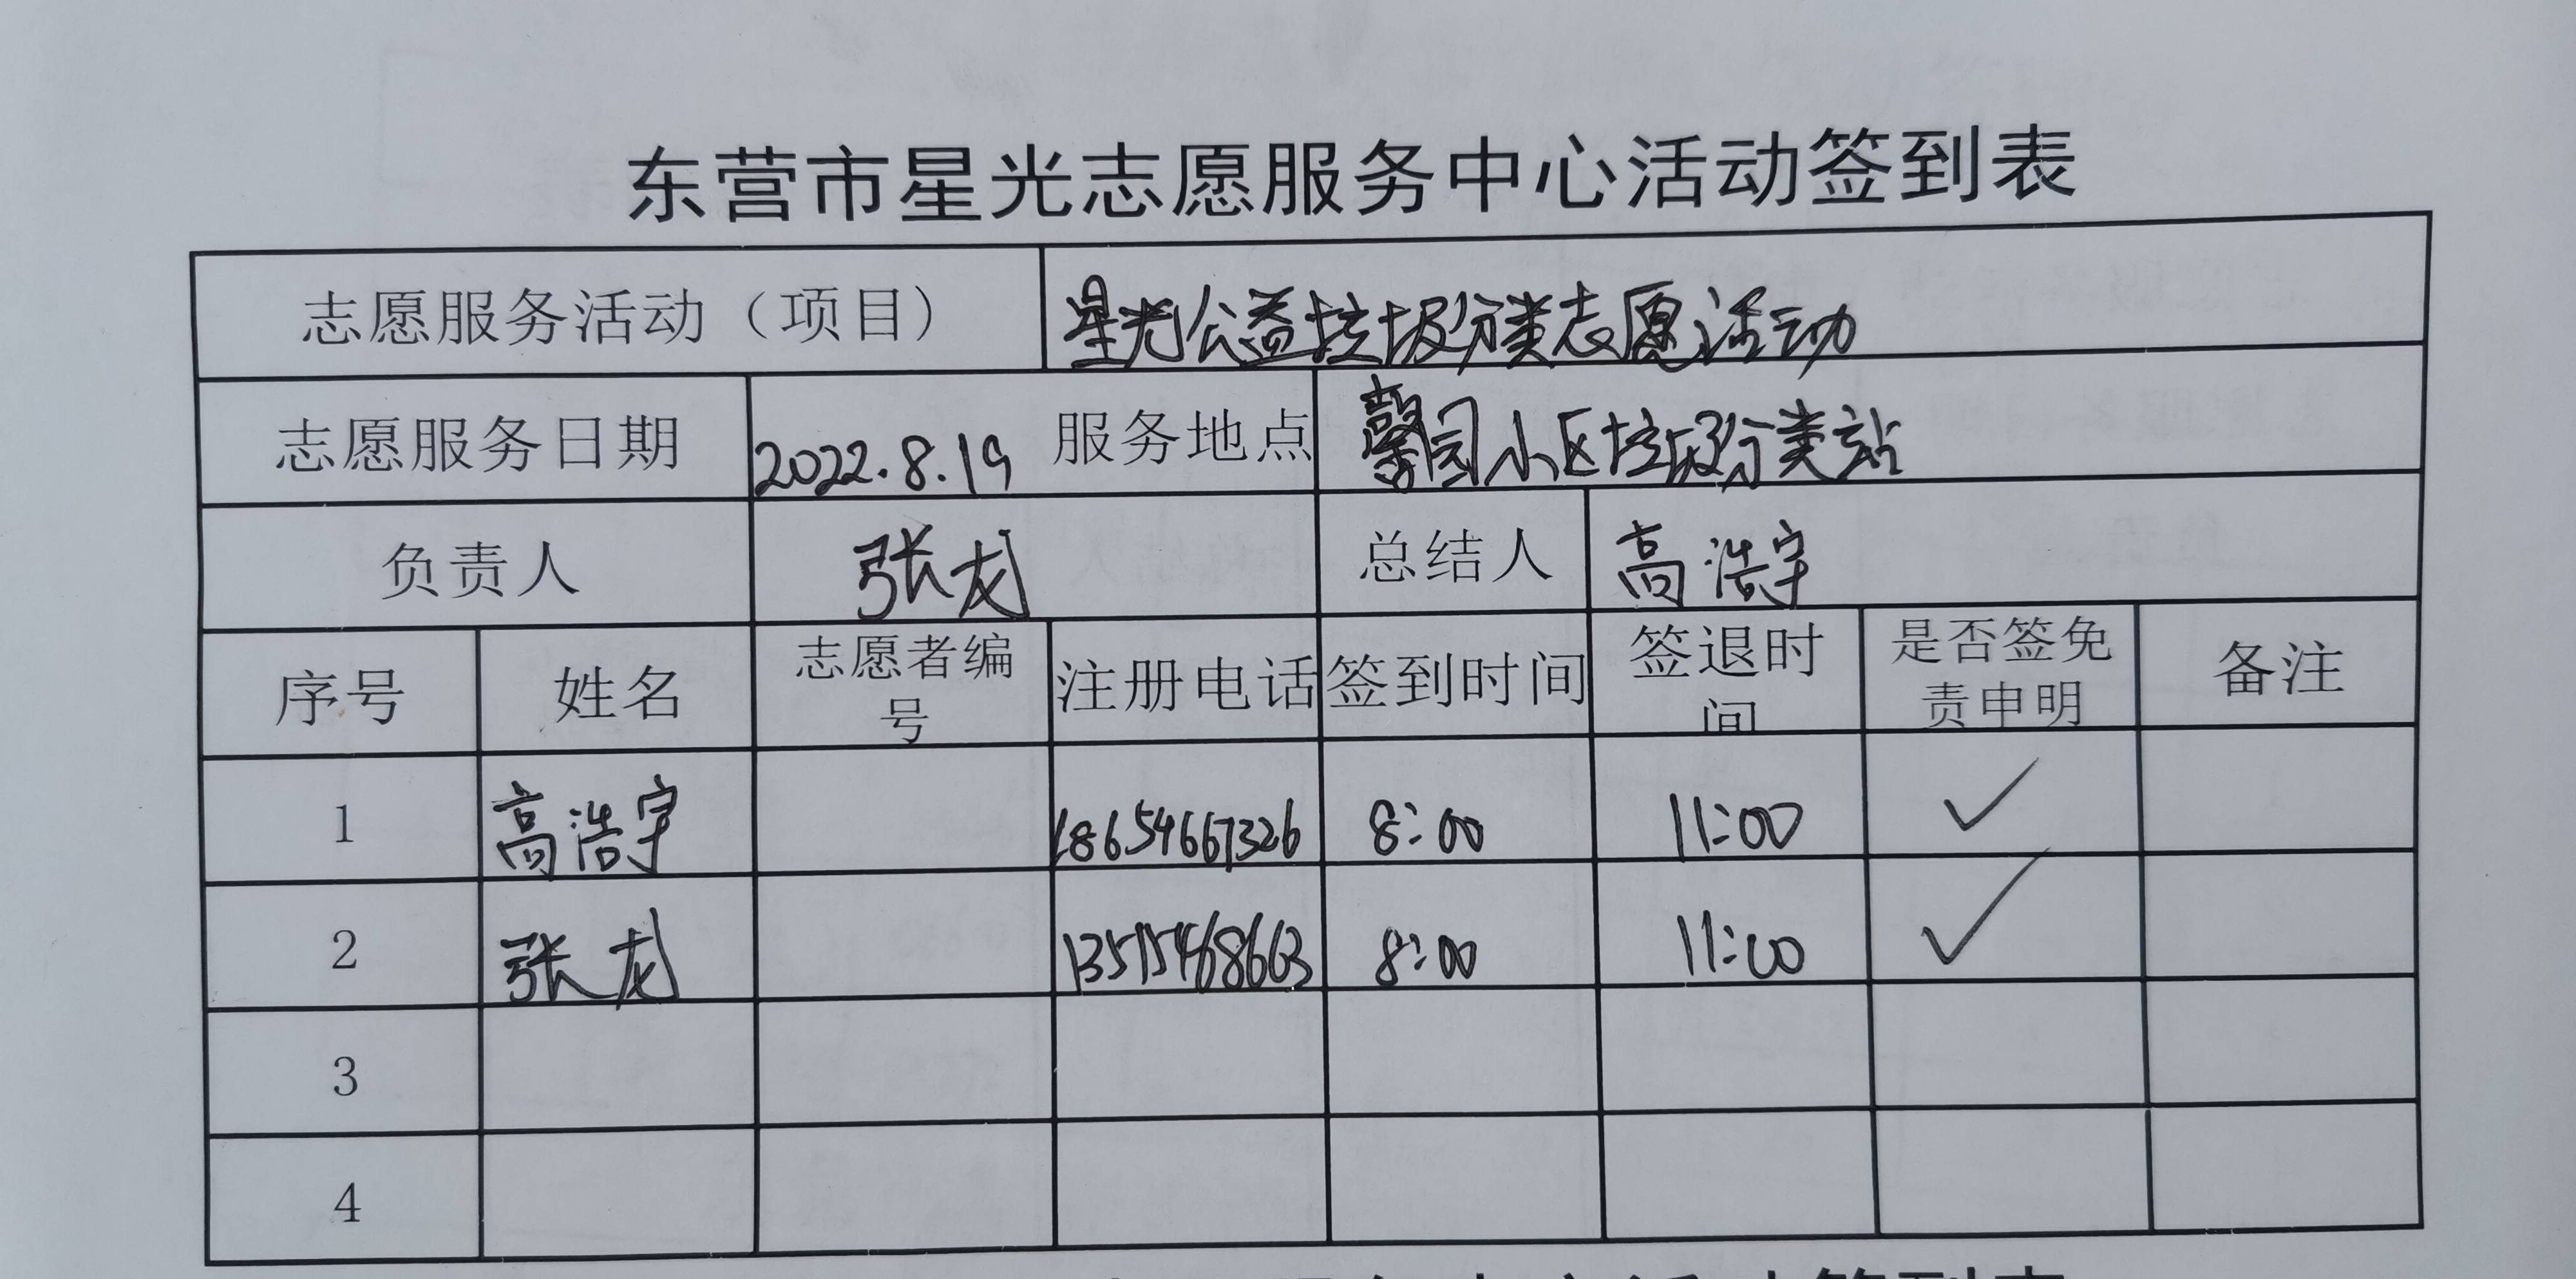 东营市星光志愿服务中心活动签到表
志愿服务活动（项目） 星光公益垃圾分类志愿活动
志愿服务日期 2022.8.19 服务地点 馨园小区垃圾分类站
负责人 张龙 总结人 高浩宇
序号 姓名 志愿者编号 注册电话 签到时间 签退时间 是否签免责申明 备注
1 高浩宇 18654667326 8:00 11:00 ✓
2 张龙 13515468663 8:00 11:00 ✓
3
4